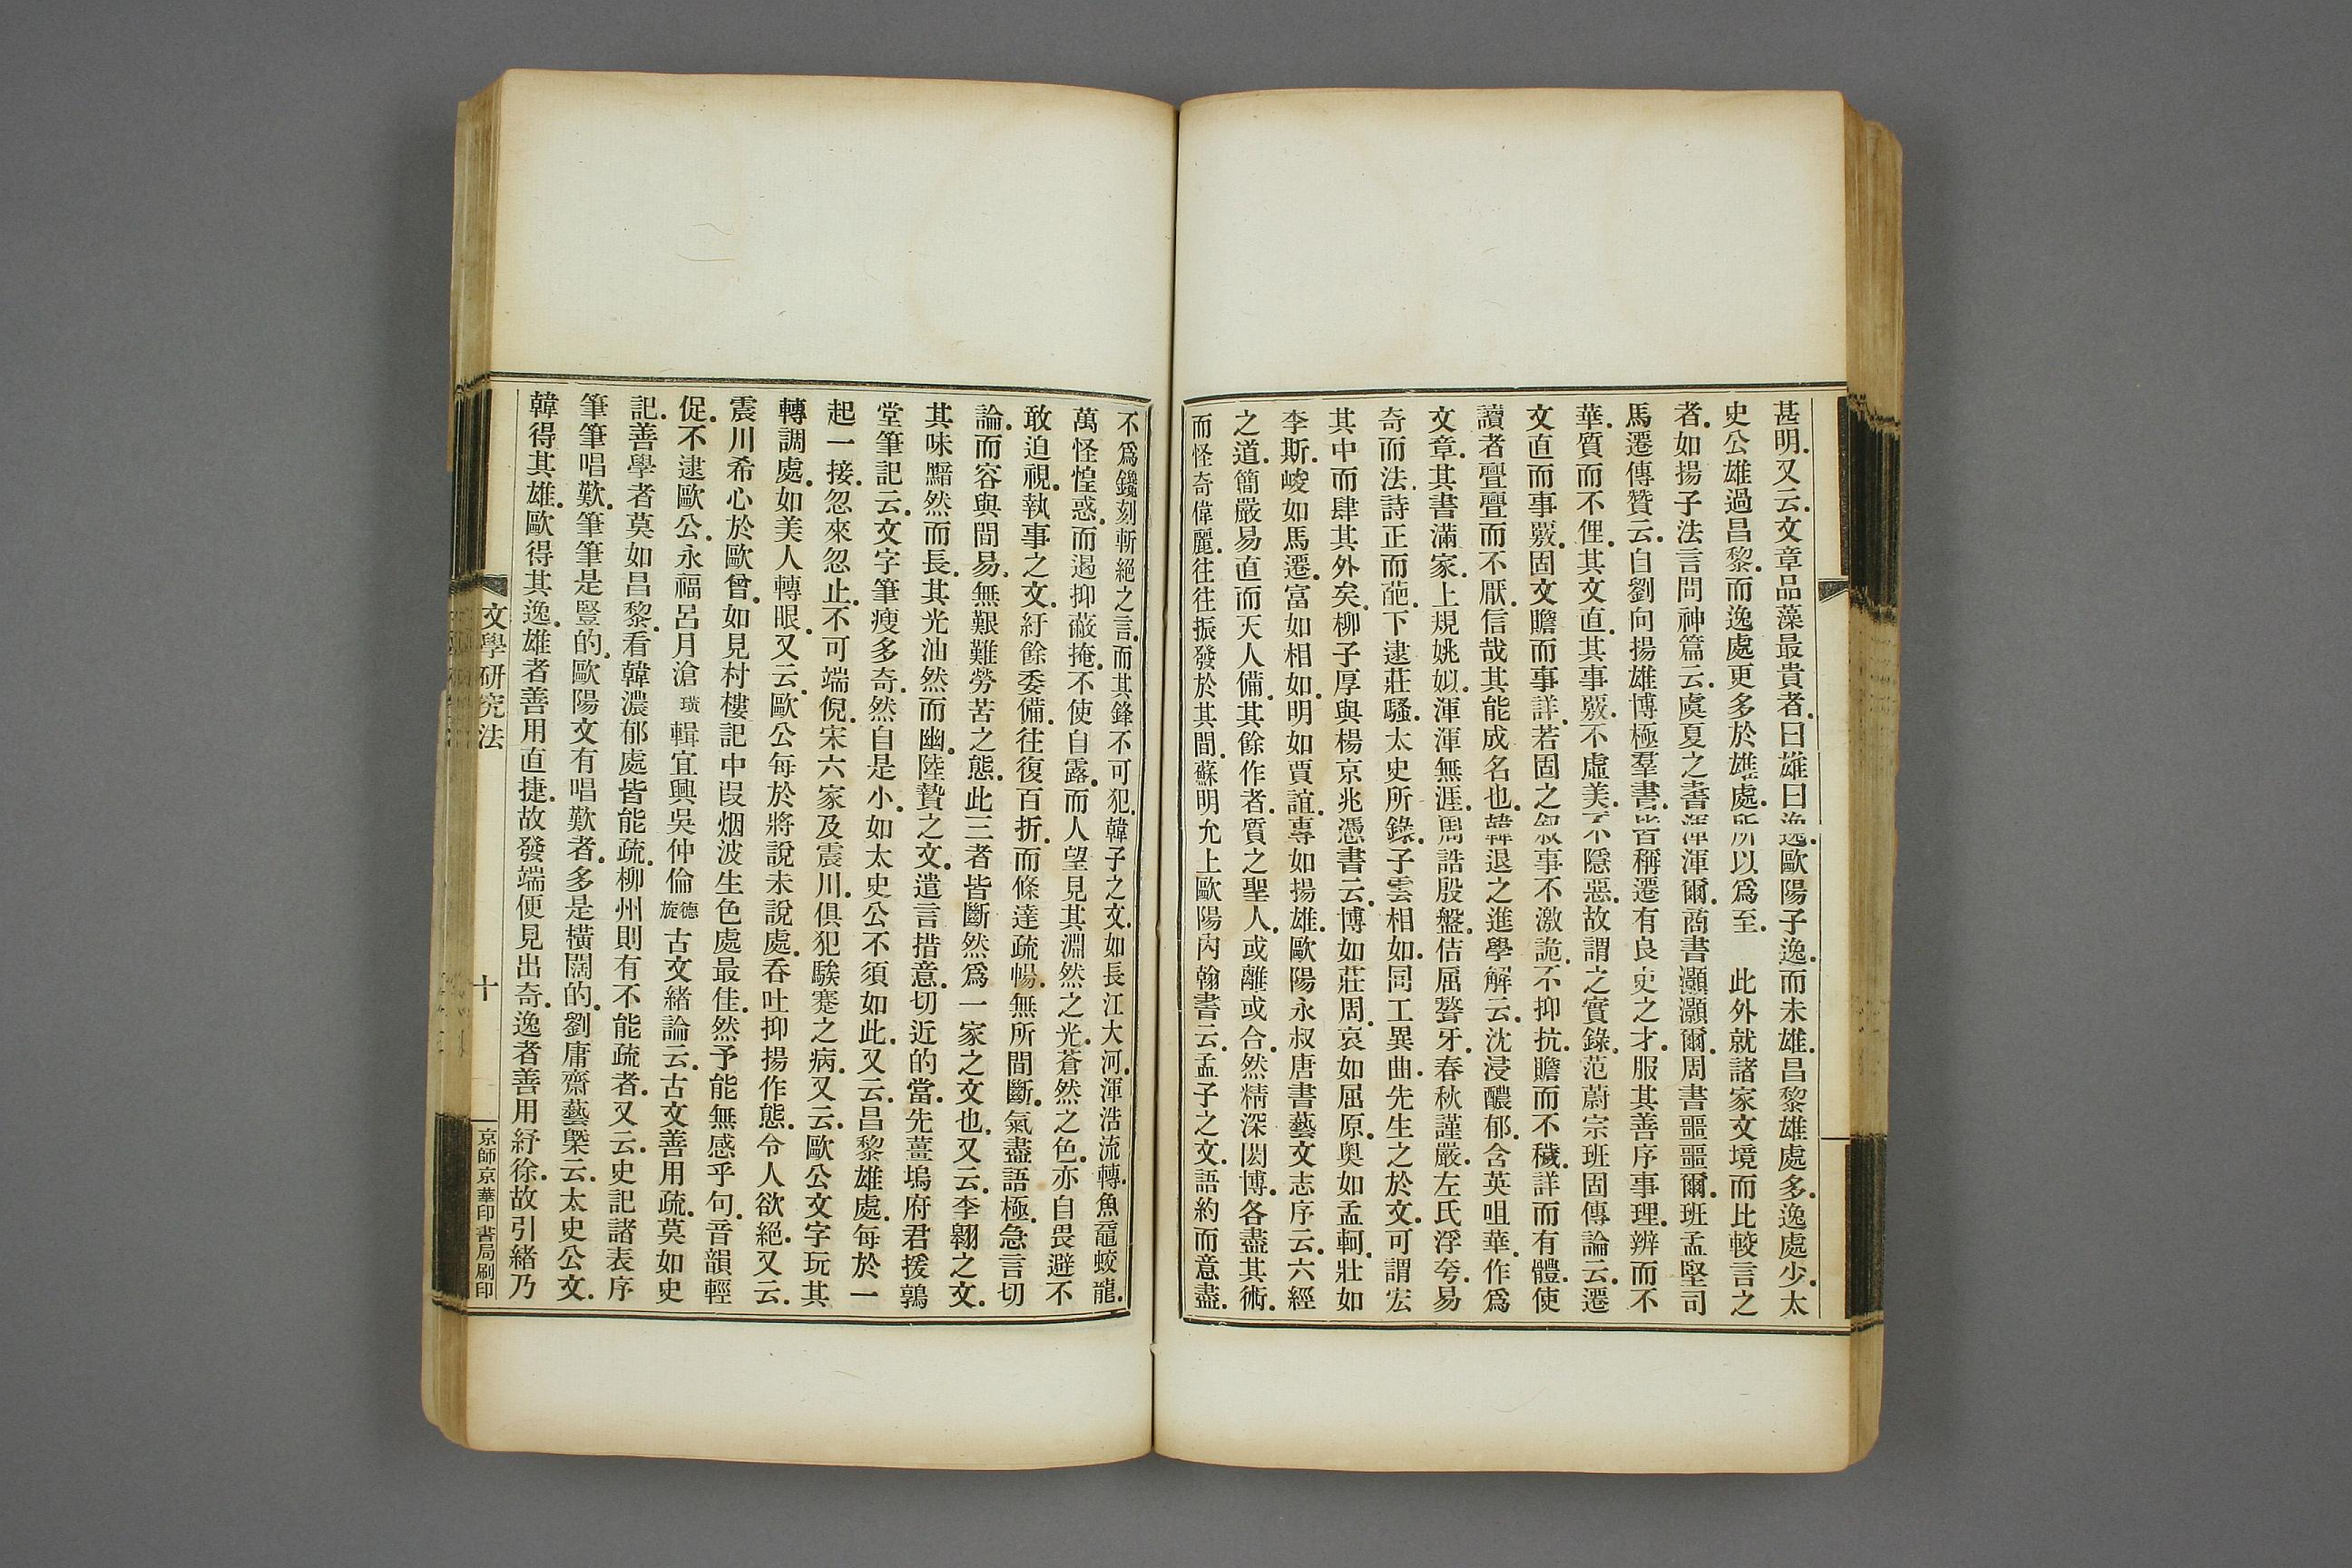 甚明.又云.文章品藻最貴者.曰雄曰逸.歐陽子逸.而未雄.昌黎雄處多.逸處少.太
史公雄過昌黎.而逸處更多於雄處.所以爲至.　此外就諸家文境而比較言之
者.如揚子法言問神篇云.虞夏之書渾渾爾.商書灝灝爾.周書噩噩爾.班孟堅司
馬遷傳贊云.自劉向揚雄博極羣書.皆稱遷有良史之才.服其善序事理.辨而不
華.質而不俚.其文直.其事覈.不虛美.不隱惡.故謂之實錄.范蔚宗班固傳論云.遷
文直而事覈.固文贍而事詳.若固之叙事不激詭.不抑抗.贍而不穢.詳而有體.使
讀者亹亹而不厭.信哉其能成名也.韓退之進學解云.沈浸醲郁.含英咀華.作爲
文章.其書滿家.上規姚姒.渾渾無涯.周誥殷盤.佶屈聱牙.春秋謹嚴.左氏浮夸.易
奇而法.詩正而葩.下逮莊騷.太史所錄.子雲相如.同工異曲.先生之於文.可謂宏
其中而肆其外矣.柳子厚與楊京兆憑書云.博如莊周.哀如屈原.奧如孟軻.壯如
李斯.峻如馬遷.富如相如.明如賈誼.專如揚雄.歐陽永叔唐書藝文志序云.六經
之道.簡嚴易直而天人備.其餘作者.質之聖人.或離或合.然精深閎博.各盡其術.
而怪奇偉麗.往往振發於其間.蘇明允上歐陽內翰書云.孟子之文.語約而意盡.
不爲鑱刻斬絕之言.而其鋒不可犯.韓子之文.如長江大河.渾浩流轉.魚黿蛟龍.
萬怪惶惑.而遏抑蔽掩.不使自露.而人望見其淵然之光.蒼然之色.亦自畏避不
敢迫視.執事之文.紆餘委備.往復百折.而條達疏暢.無所間斷.氣盡語極.急言切
論.而容與間易.無艱難勞苦之態.此三者皆斷然爲一家之文也.又云.李翱之文.
其味黯然而長.其光油然而幽.陸贄之文.遣言措意.切近的當.先薑塢府君援鶉
堂筆記云.文字筆瘦多奇.然自是小.如太史公不須如此.又云.昌黎雄處.每於一
起一接.忽來忽止.不可端倪.宋六家及震川.俱犯騃蹇之病.又云.歐公文字玩其
轉調處.如美人轉眼.又云.歐公每於將說未說處.吞吐抑揚作態.令人欲絕.又云.
震川希心於歐曾.如見村樓記中段烟波生色處最佳.然予能無感乎句.音韻輕
促.不逮歐公.永福呂月滄璜輯宜興吳仲倫德旋古文緒論云.古文善用疏.莫如史
記.善學者莫如昌黎.看韓濃郁處皆能疏.柳州則有不能疏者.又云.史記諸表序
筆筆唱歎.筆筆是豎的.歐陽文有唱歎者.多是橫闊的.劉庸齋藝槩云.太史公文.
韓得其雄.歐得其逸.雄者善用直捷.故發端便見出奇.逸者善用紆徐.故引緒乃
文學研究法
十
京師京華印書局刷印